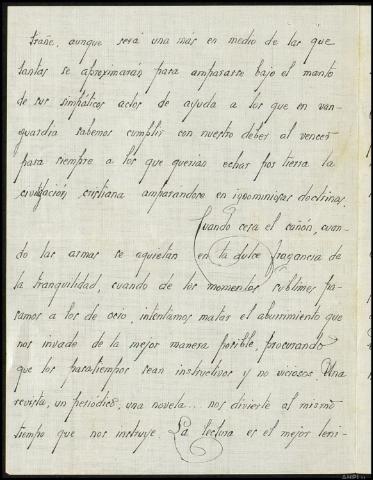 trañe, aunque será una mas en medio de las que
tantas se aproximarán para ampararse bajo el manto
de sus simpáticos actos de ayuda a los que en van-
guardia sabemos cumplir con nuestro deber al vencer
para siempre a los que querian echar por tierra la
civilización cristiana amparandose en ignominiosas doctrinas.
Cuando cesa el cañón, cuan-
do las armas se aquietan en la dulce fragancia de
la tranquilidad, cuando de los momentos sublimes pa-
samos a los de ocio, intentamos matar el aburrimiento que
nos invade de la mejor manera posible, procurando
que los pasatiempos sean instructivos y no viciosos. Una
revista, un periódico, una novela... nos divierte al mismo
tiempo que nos instruye. La lectura es el mejor leni-